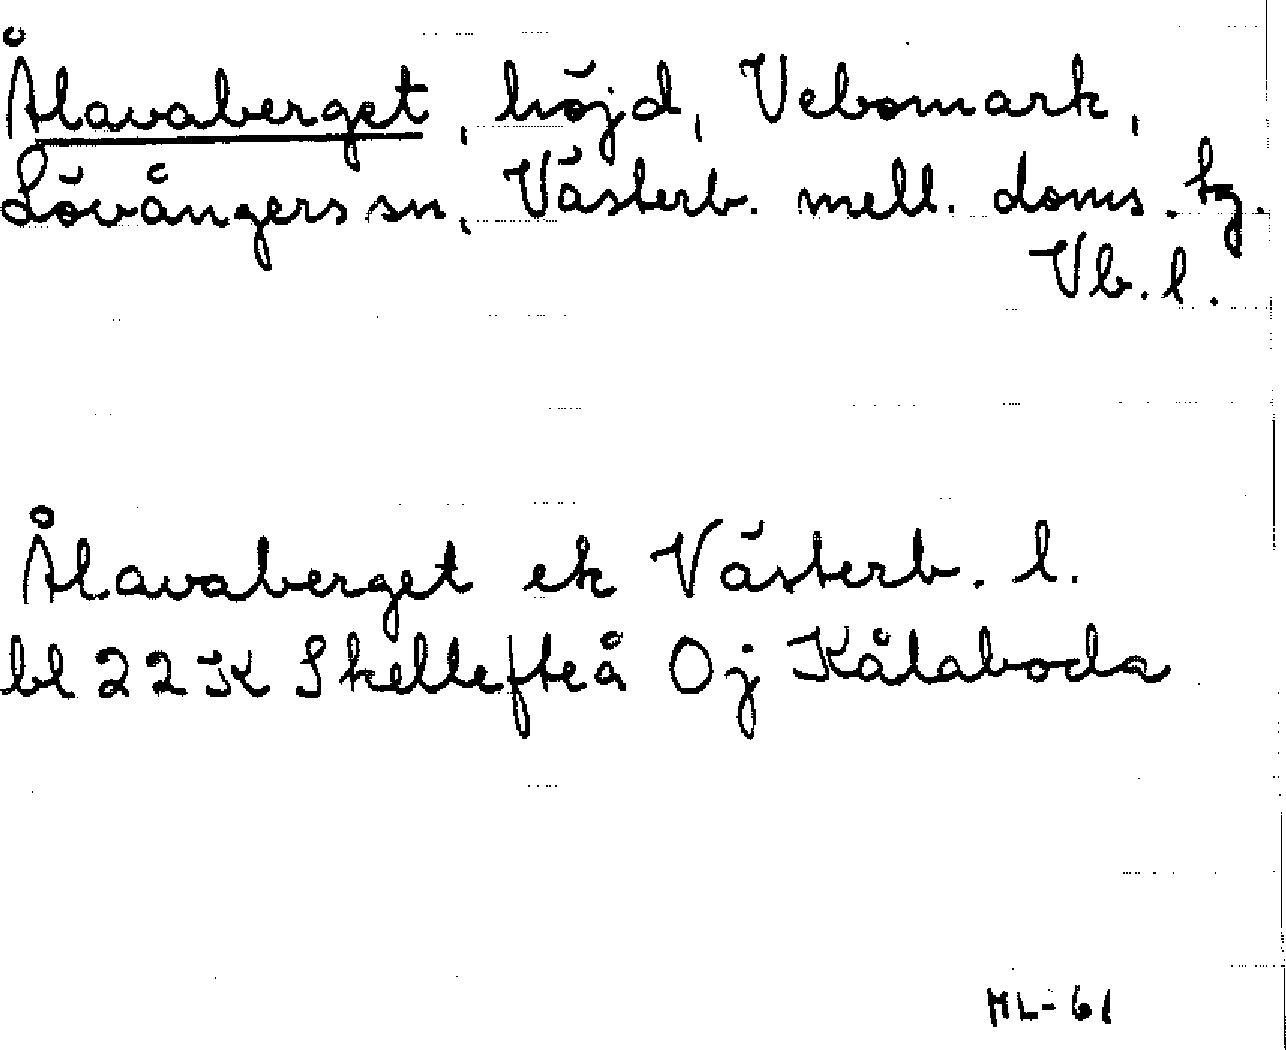 Ålavaberget, höjd, Vebomark,
Lövångers sn, Västerb. mell. doms. tg.
Vb. l.
Ålavaberget ek Västerb. l.
bl 22 K Skellefteå Oj Kålaboda
ML-61